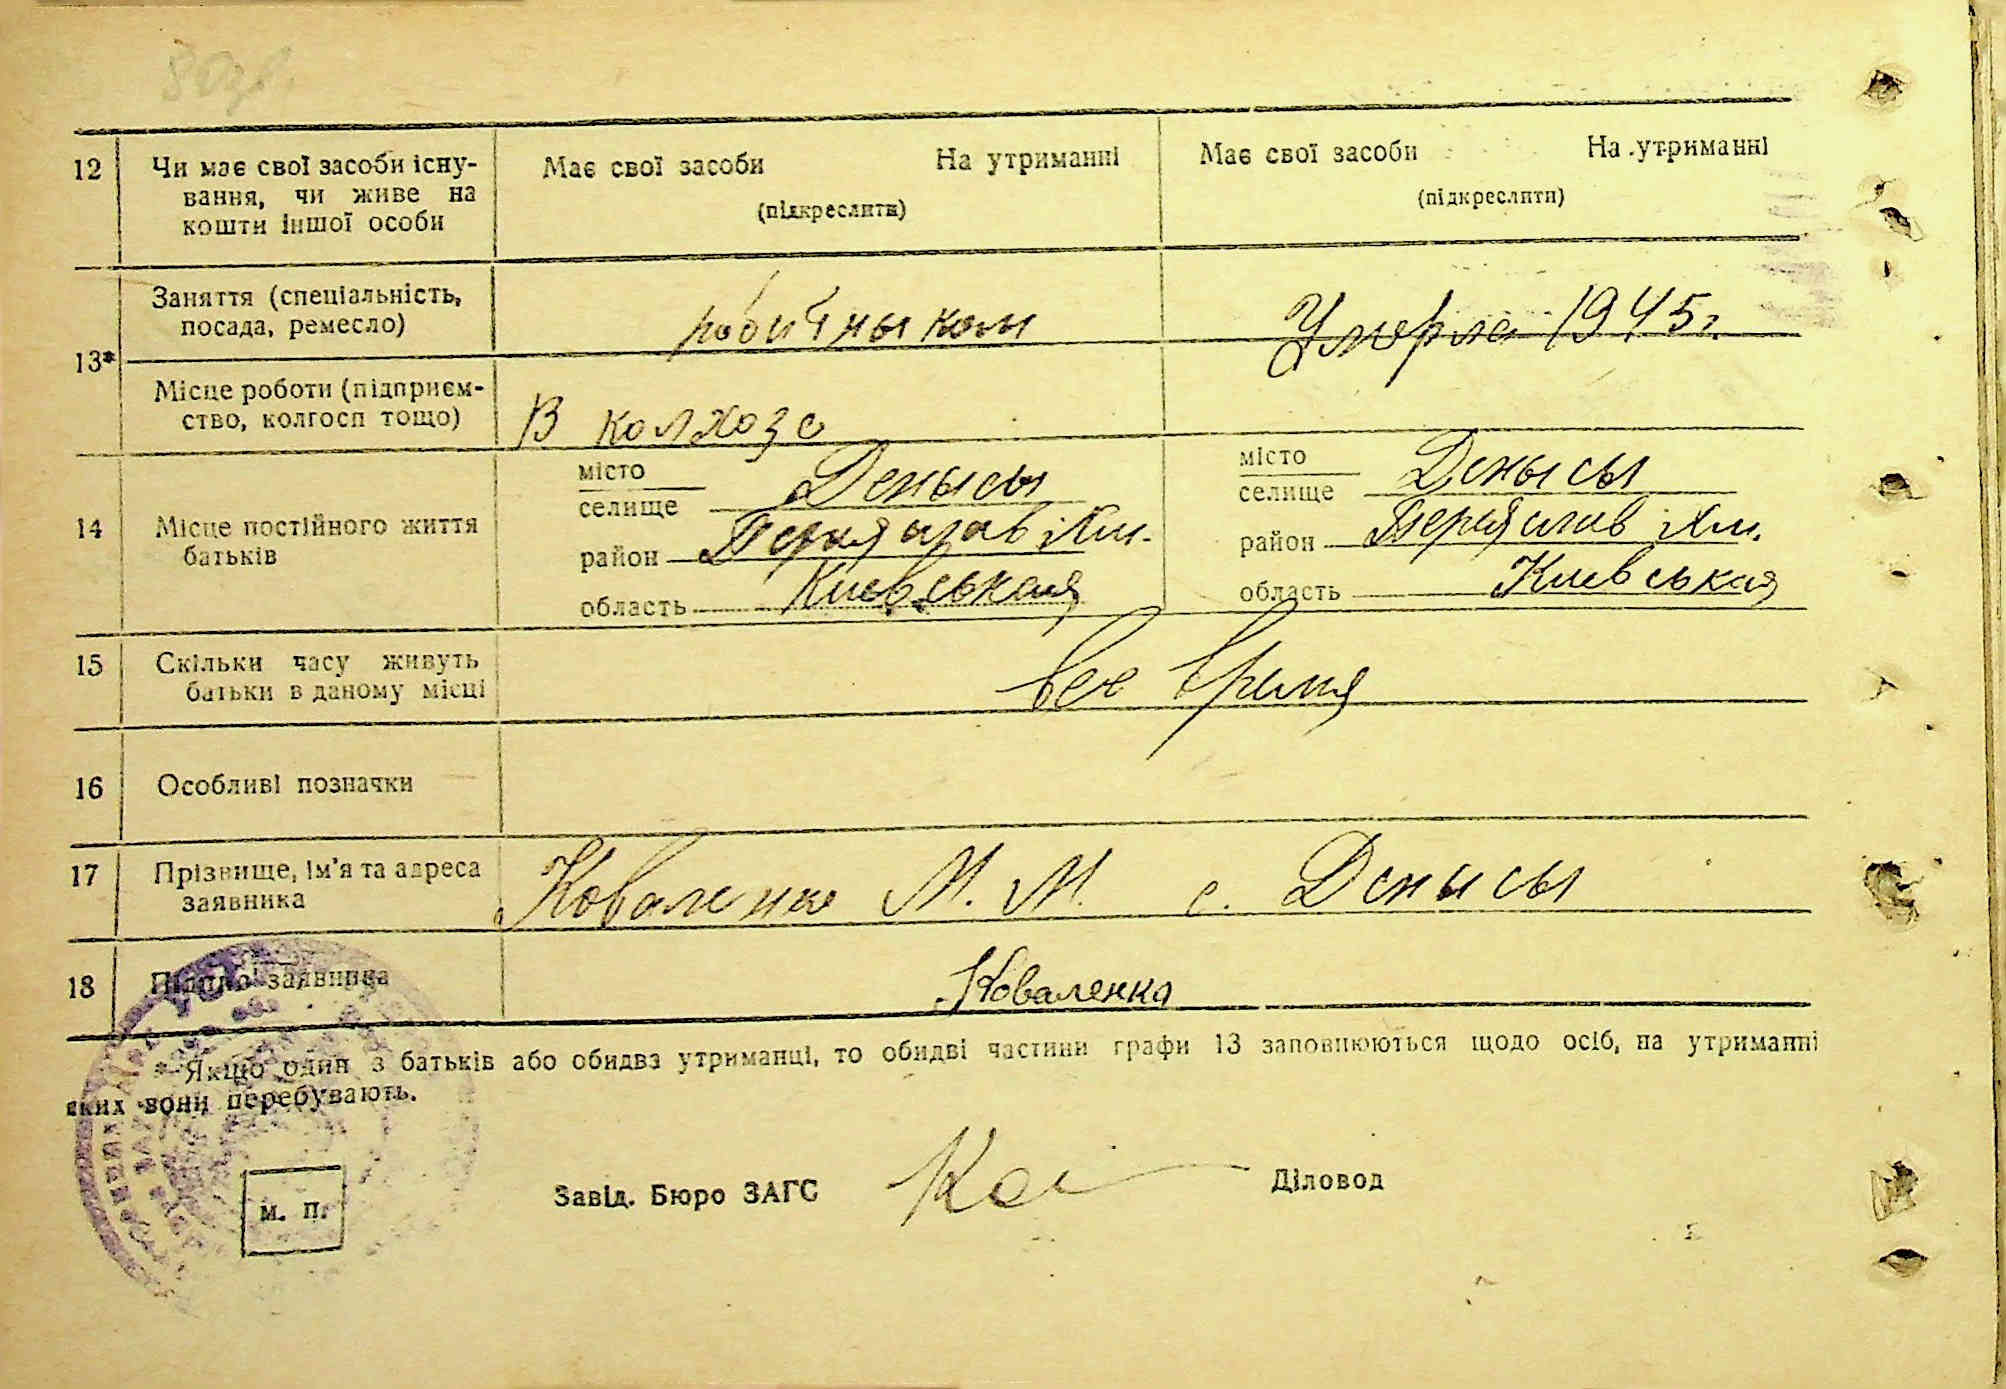 12 Чи має свої засоби існу- Має свої засоби На утриманні Має свої засоби На утриманні
вання, чи живе на (підкреслити) (підкреслити)
кошти іншої особи
13* Заняття (спеціальність, робитныком Умерла 1945г.
посада, ремесло)
Місце роботи (підприєм- В колхозе
ство, колгосп тощо)
14 Місце постійного життя батьків
місто
селище Денысы
район Переяслав Хм.
область Киевськая
місто
селище Денысы
район Переяслав Хм.
область Киевськая
15 Скільки часу живуть все время
батьки в даному місці
16 Особливі позначки
17 Прізвище, ім'я та адреса Коваленко М. М. с. Денысы
заявника
18 Підпис заявника Коваленко
* Якщо один з батьків або обидва утриманці, то обидві частини графи 13 заповнюються щодо осіб, на утриманні
яких вони перебувають.
м. п. Завід. Бюро ЗАГС Діловод